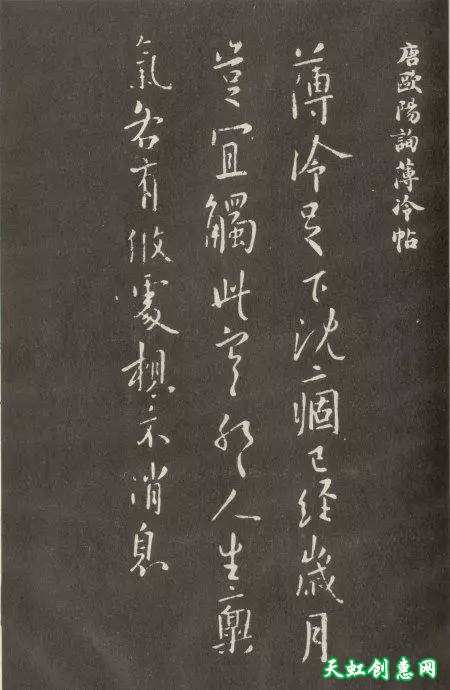 唐歐陽詢薄冷帖
薄冷足下沈痼已經歲月
豈宜觸此寒耶人生稟
氣各有攸處想示消息
天虹创惠网